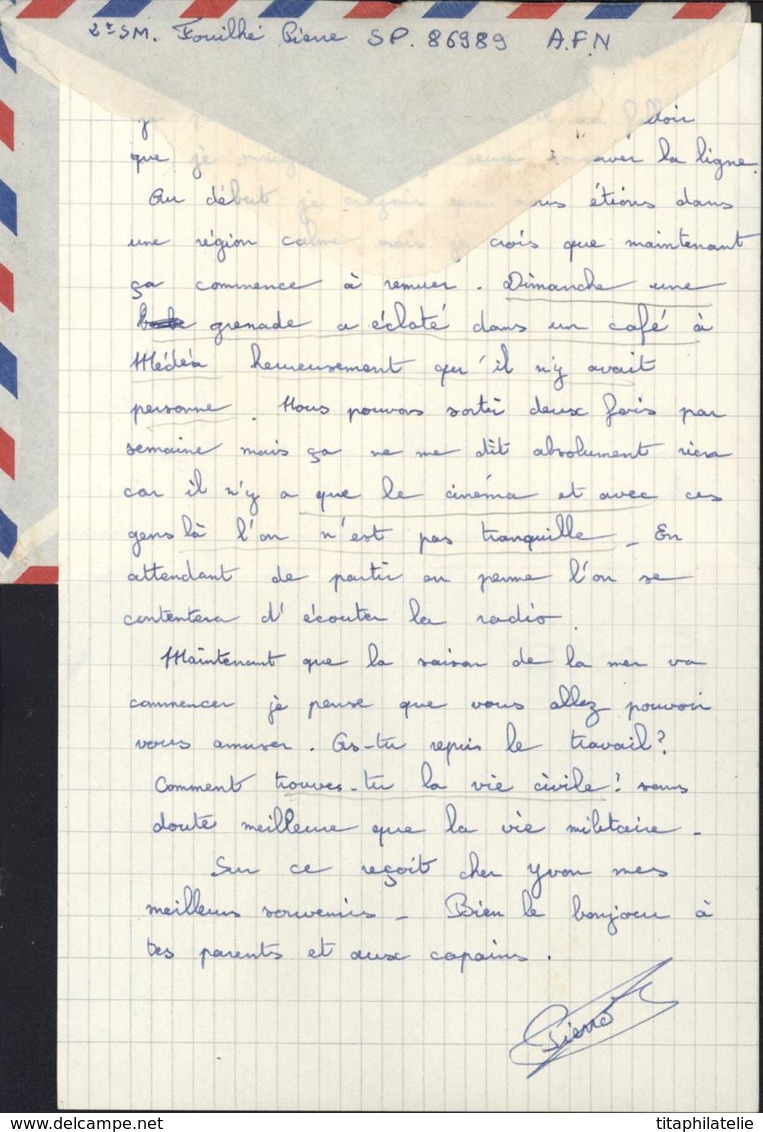 2e SM. Fouilhé Pierre SP. 86989 A.F.N
je
que je ver la ligne.
Au début je croyais que nous étions dans
une région calme, mais je crois que maintenant
ça commence à remuer. Dimanche une
grenade a éclaté dans un café à
Médéa heureusement qu'il n'y avait
personne. Nous pouvons sortir deux fois par
semaine mais ça ne me dit absolument rien
car il n'y a que le cinéma et avec ces
gens là l'on n'est pas tranquille _ En
attendant de partir en perme l'on se
contentera d'écouter la radio.
Maintenant que la saison de la mer va
commencer je pense que vous allez pouvoir
vous amuser. As-tu repris le travail?
Comment trouves-tu la vie civile! sans
doute meilleure que la vie militaire _
Sur ce reçoit cher Yvon mes
meilleurs souvenirs _ Bien le bonjour à
tes parents et aux copains.
Pierre
titaphilatelie